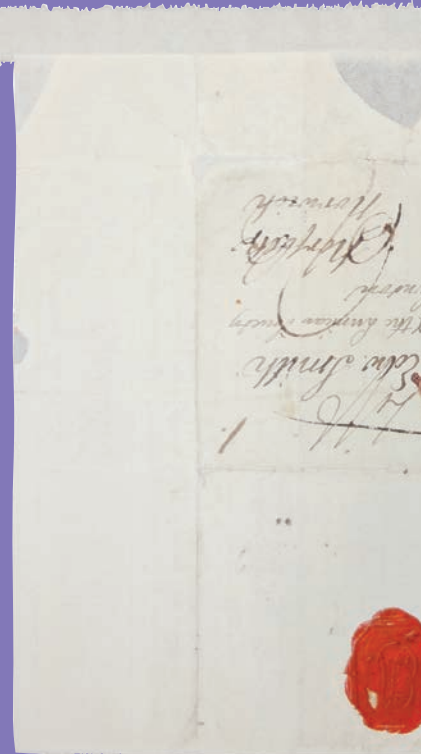 Edw: Smith
the Linnean Society
ndon
Norfolk
Norwich